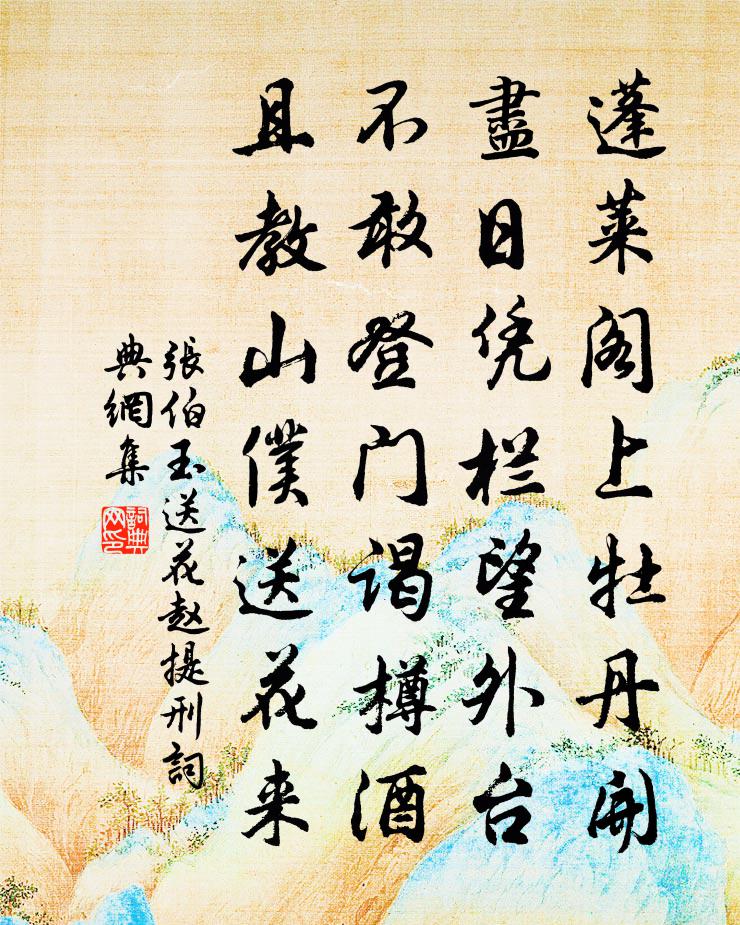 蓬莱阁上牡丹開
盡日凭栏望外台
不敢登门谒樽酒
且教山僕送花来
張伯玉送花赵提刑詞
典網集
詞典
网印